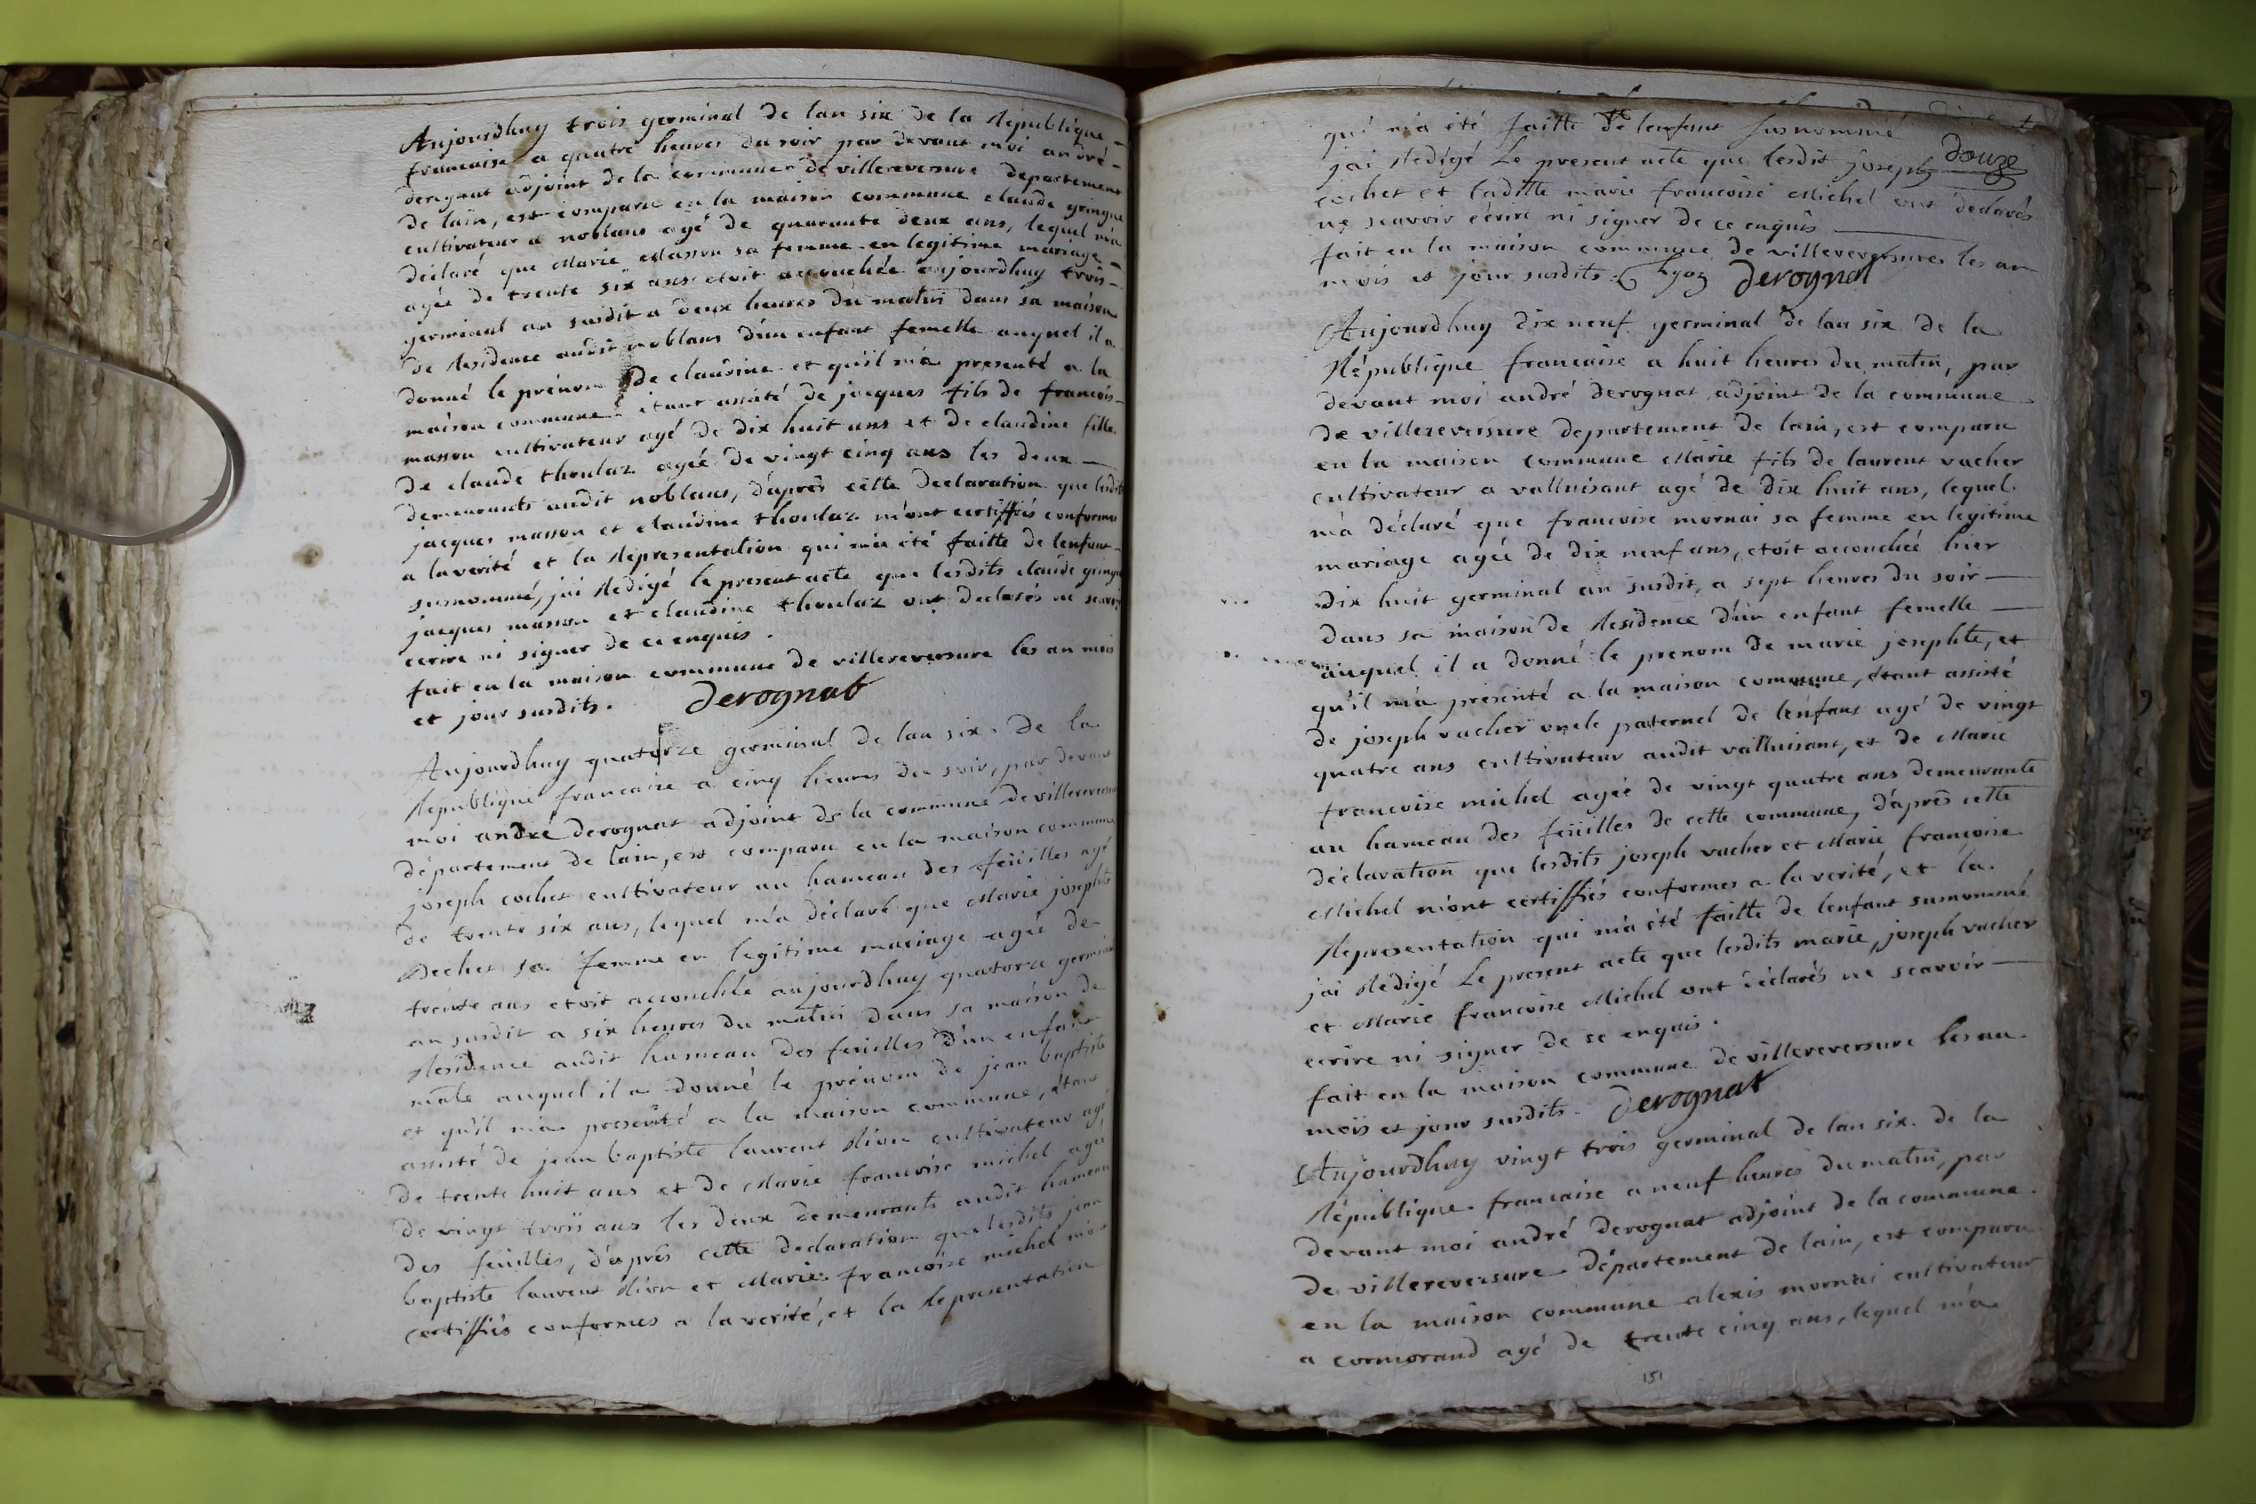 Aujourdhuy trois germinal de lan six de la Republique
francaise a quatre heures du soir par devant moi andré
derognat adjoint de la commune de villereversure departement
de lain, est comparu en la maison commune claude gringoz
cultivateur a noblans agé de quarante deux ans, lequel m'a
déclaré que Marie Masson sa femme en legitime mariage
agée de trente six ans etoit accouchée aujourdhuy trois
germinal an susdit a deux heures du matin dans sa maison
de Residence audit noblans d'un enfant femelle auquel il a
donné le prénom de claudine et qu'il m'a presenté a la
maison commune étant assisté de jacques fils de francois
masson cultivateur agé de dix huit ans et de claudine fille
de claude thoulaz agée de vingt cinq ans les deux
demeurants audit noblans, d'après cette declaration que lesdits
jacques masson et claudine thoulaz m'ont certiffiés conforme
a la verité et la Representation qui m'a été faitte de lenfant
susnommé, jai Redigé le present acte que lesdits claude
jacques masson et claudine thoulaz ont declarés ne scavoir
ecrire ni signer de ce enquis.
fait en la maison commune de villereversure les an mois
et jour susdits. Derognat
Aujourdhuy quatorze germinal de lan six de la
Republique francaise a cinq heures du soir, par devant
moi andré derognat adjoint de la commune de villereversure
département de lain, est comparu en la maison commune
joseph cochet cultivateur au hameau des feüilles agé
de trente six ans, lequel m'a déclaré que Marie josephte
sa femme en legitime mariage agée de
trente ans etoit accouchée aujourdhuy quatorze germinal
an susdit a six heures du matin dans sa maison de
Residence audit hameau des feuilles d'un enfant
male auquel il a donné le prénom de jean baptiste
et qu'il m'a presenté a la maison commune, étant
assisté de jean baptiste laurent cultivateur agé
de trente huit ans et de Marie francoise michel agée
de vingt trois ans les deux demeurants audit hameau
des feuilles, d'après cette declaration que lesdits jean
baptiste laurent et Marie francoise michel m'ont
certiffiés conformes a la verité, et la Representation
douze
qui m'a été faitte de lenfant susnommé
jai Redigé Le present acte que lesdit joseph
cochet et ladille marie francoise Michel ont déclarés
ne scavoir écrire ni signer de ce enquis
fait en la maison commune de villereversures les an
mois et jour susdits. Derognat
Aujourdhuy dix neuf germinal de lan six de la
République francaise a huit heures du matin, par
devant moi andré derognat adjoint de la commune
de villereversure departement de lain, est comparu
en la maison commune Marie fils de laurent vacher
cultivateur a valluisant agé de dix huit ans, lequel
m'a déclaré que francoise mornai sa femme en legitime
mariage agée de dix neuf ans, etoit accouchée hier
dix huit germinal an susdit, a sept heures du soir
dans sa maison de Residence d'un enfant femelle
auquel il a donné le prenom de marie josephte, et
qu'il m'a présenté a la maison commune, étant assisté
de joseph vacher oncle paternel de lenfant agé de vingt
quatre ans cultivateur audit valluisant, et de Marie
francoise michel agée de vingt quatre ans demeurante
au hameau des feüilles de cette commune, d'après cette
déclaration que lesdits joseph vacher et Marie francoise
Michel m'ont certiffiés conformes a la verité, et la
Representation qui m'a été faitte de lenfant susnommé
jai Rédigé Le present acte que lesdits marie, joseph vacher
et Marie francoise Michel ont déclarés ne scavoir
ecrire ni signer de se enquis.
fait en la maison commune de villereversure les an
mois et jour susdits. Derognat
Aujourdhuy vingt trois germinal de lan six de la
République francaise a neuf heures du matin, par
devant moi andré derognat adjoint de la commune
de villereversure département de lain, est comparu
en la maison commune alexis mornai cultivateur
a cormorand agé de trente cinq ans, lequel m'a
151